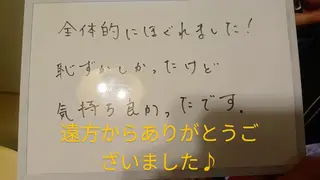 全体的にほぐれました!
恥ずかしかったけど
気持ち良かったです。
遠方からありがとうご
ざいました♪